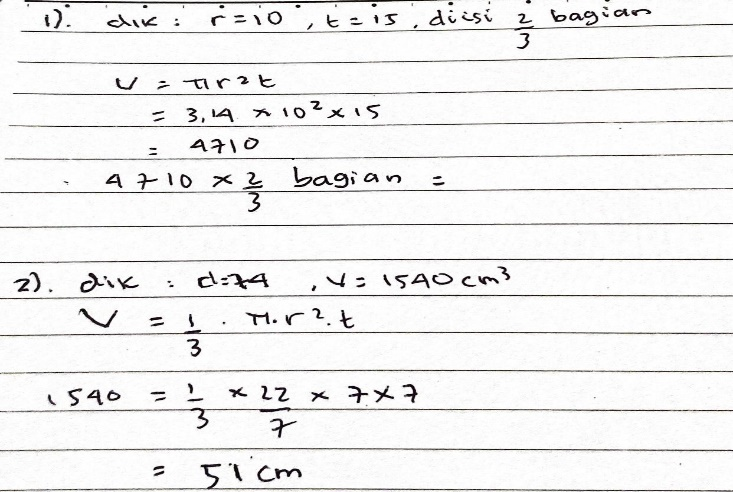 1). dik : r = 10 , t = 15 , diisi 2/3 bagian
V = πr²t
= 3,14 × 10² × 15
= 4710
4710 × 2/3 bagian =
2). dik : d = 14 , V = 1540 cm³
V = 1/3 . π . r² . t
1540 = 1/3 × 22/7 × 7 × 7
= 51 cm